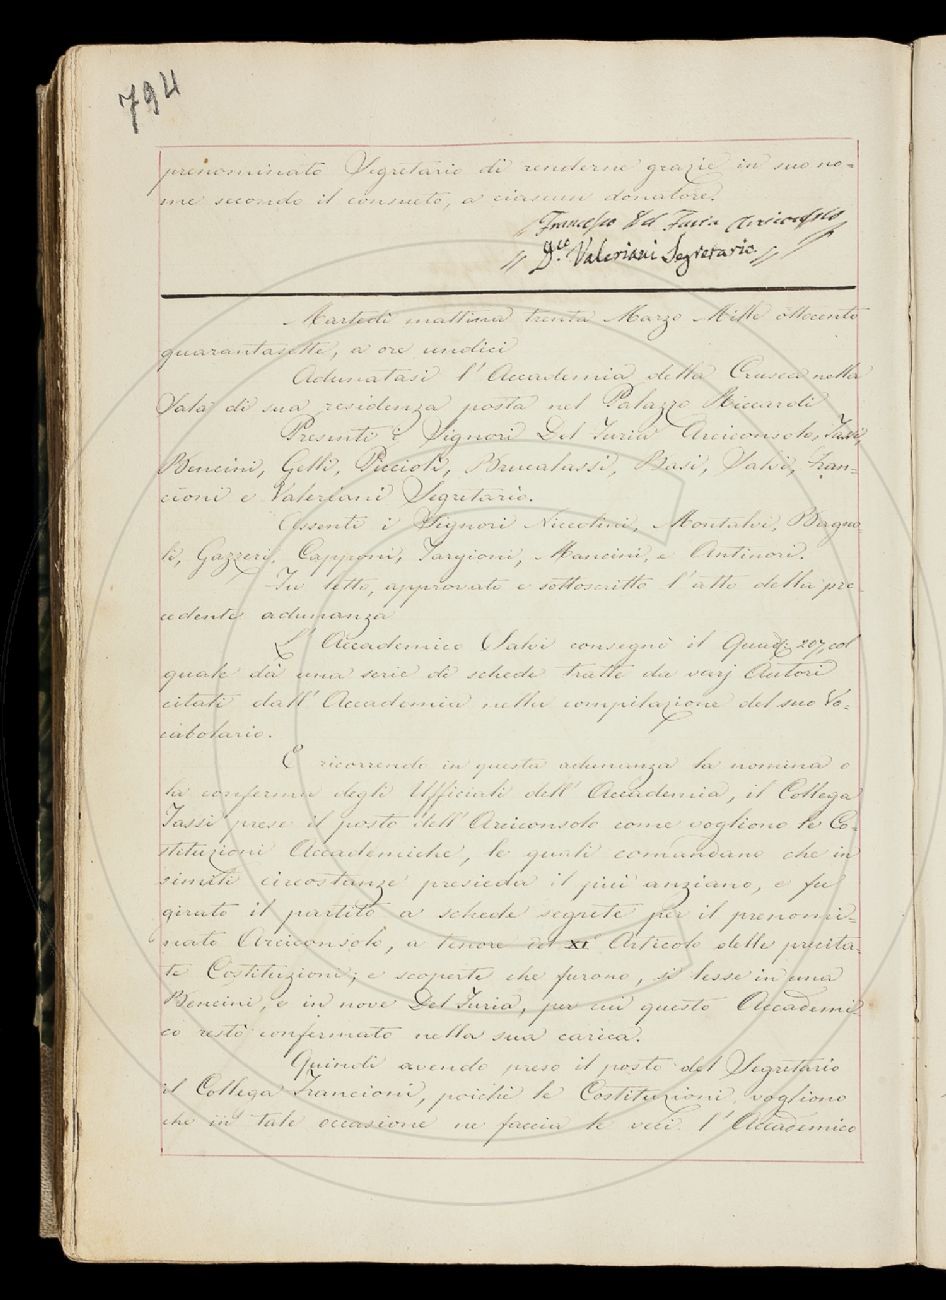 794
prenominato Segretario di renderne grazie in suo no=
me secondo il consueto, a ciascun donatore.
Francesco Del Furia Arciconsolo
D.co Valeriani Segretario
Martedì mattina trenta Marzo Mille ottocento
quarantasette, a ore undici
Adunatasi l'Accademia della Crusca nella
Sala di sua residenza posta nel Palazzo Riccardi
Presenti i Signori Del Furia Arciconsolo, Tassi,
Bencini, Gelli, Piccioli, Brucalassi, Basi, Salvi, Fran=
cioni e Valeriani Segretario.
Assenti i Signori Niccolini, Montalvi, Bagno
li, Gazzeri, Capponi, Targioni, Mancini, e Antinori.
Fu letto, approvato e sottoscritto l'atto della pre
cedente adunanza
L'Accademico Salvi consegnò il Quad. 207, col
quale dà una serie di schede tratte da varj Autori
citati dall'Accademia nella compilazione del suo Vo=
cabolario.
E ricorrendo in questa adunanza la nomina o
la conferma degli Ufficiali dell'Accademia, il Collega
Tassi prese il posto dell'Arciconsolo come vogliono le Co=
stituzioni Accademiche, le quali comandano che in
simili circostanze presieda il più anziano, e fu
girato il partito a schede segrete per il prenomi=
nato Arciconsolo, a tenore del XI Articolo delle precita=
te Costituzioni; e scoperte che furono, si lesse in una
Bencini, e in nove Del Furia, per cui questo Accademi=
co restò confermato nella sua carica.
Quindi avendo preso il posto del Segretario
il Collega Francioni, poichè le Costituzioni vogliono
che in tale occasione ne faccia le veci l'Accademico